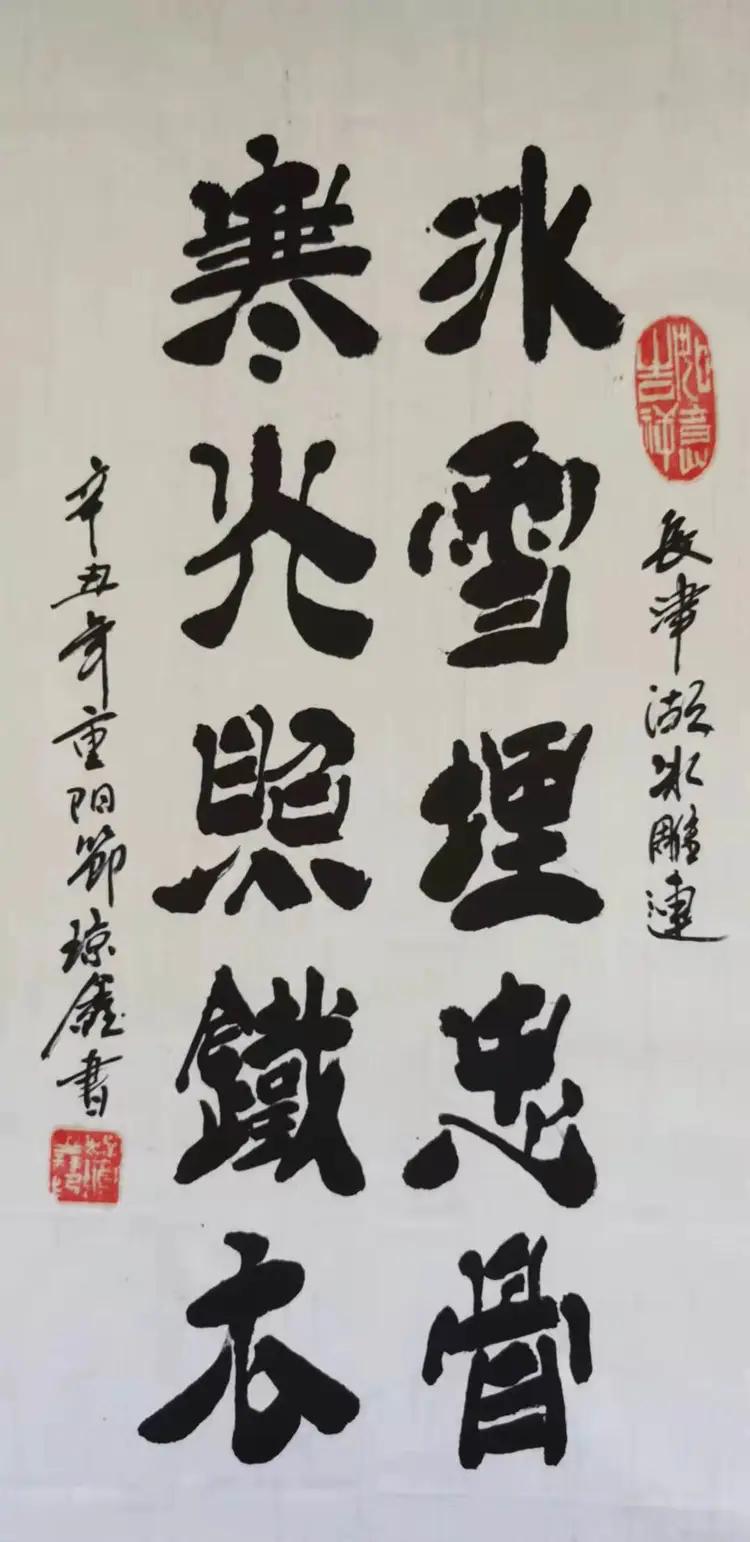 如意吉祥
長津湖冰雕連
冰雪埋忠骨
寒光照鐵衣
辛丑年重阳節琼鑫書